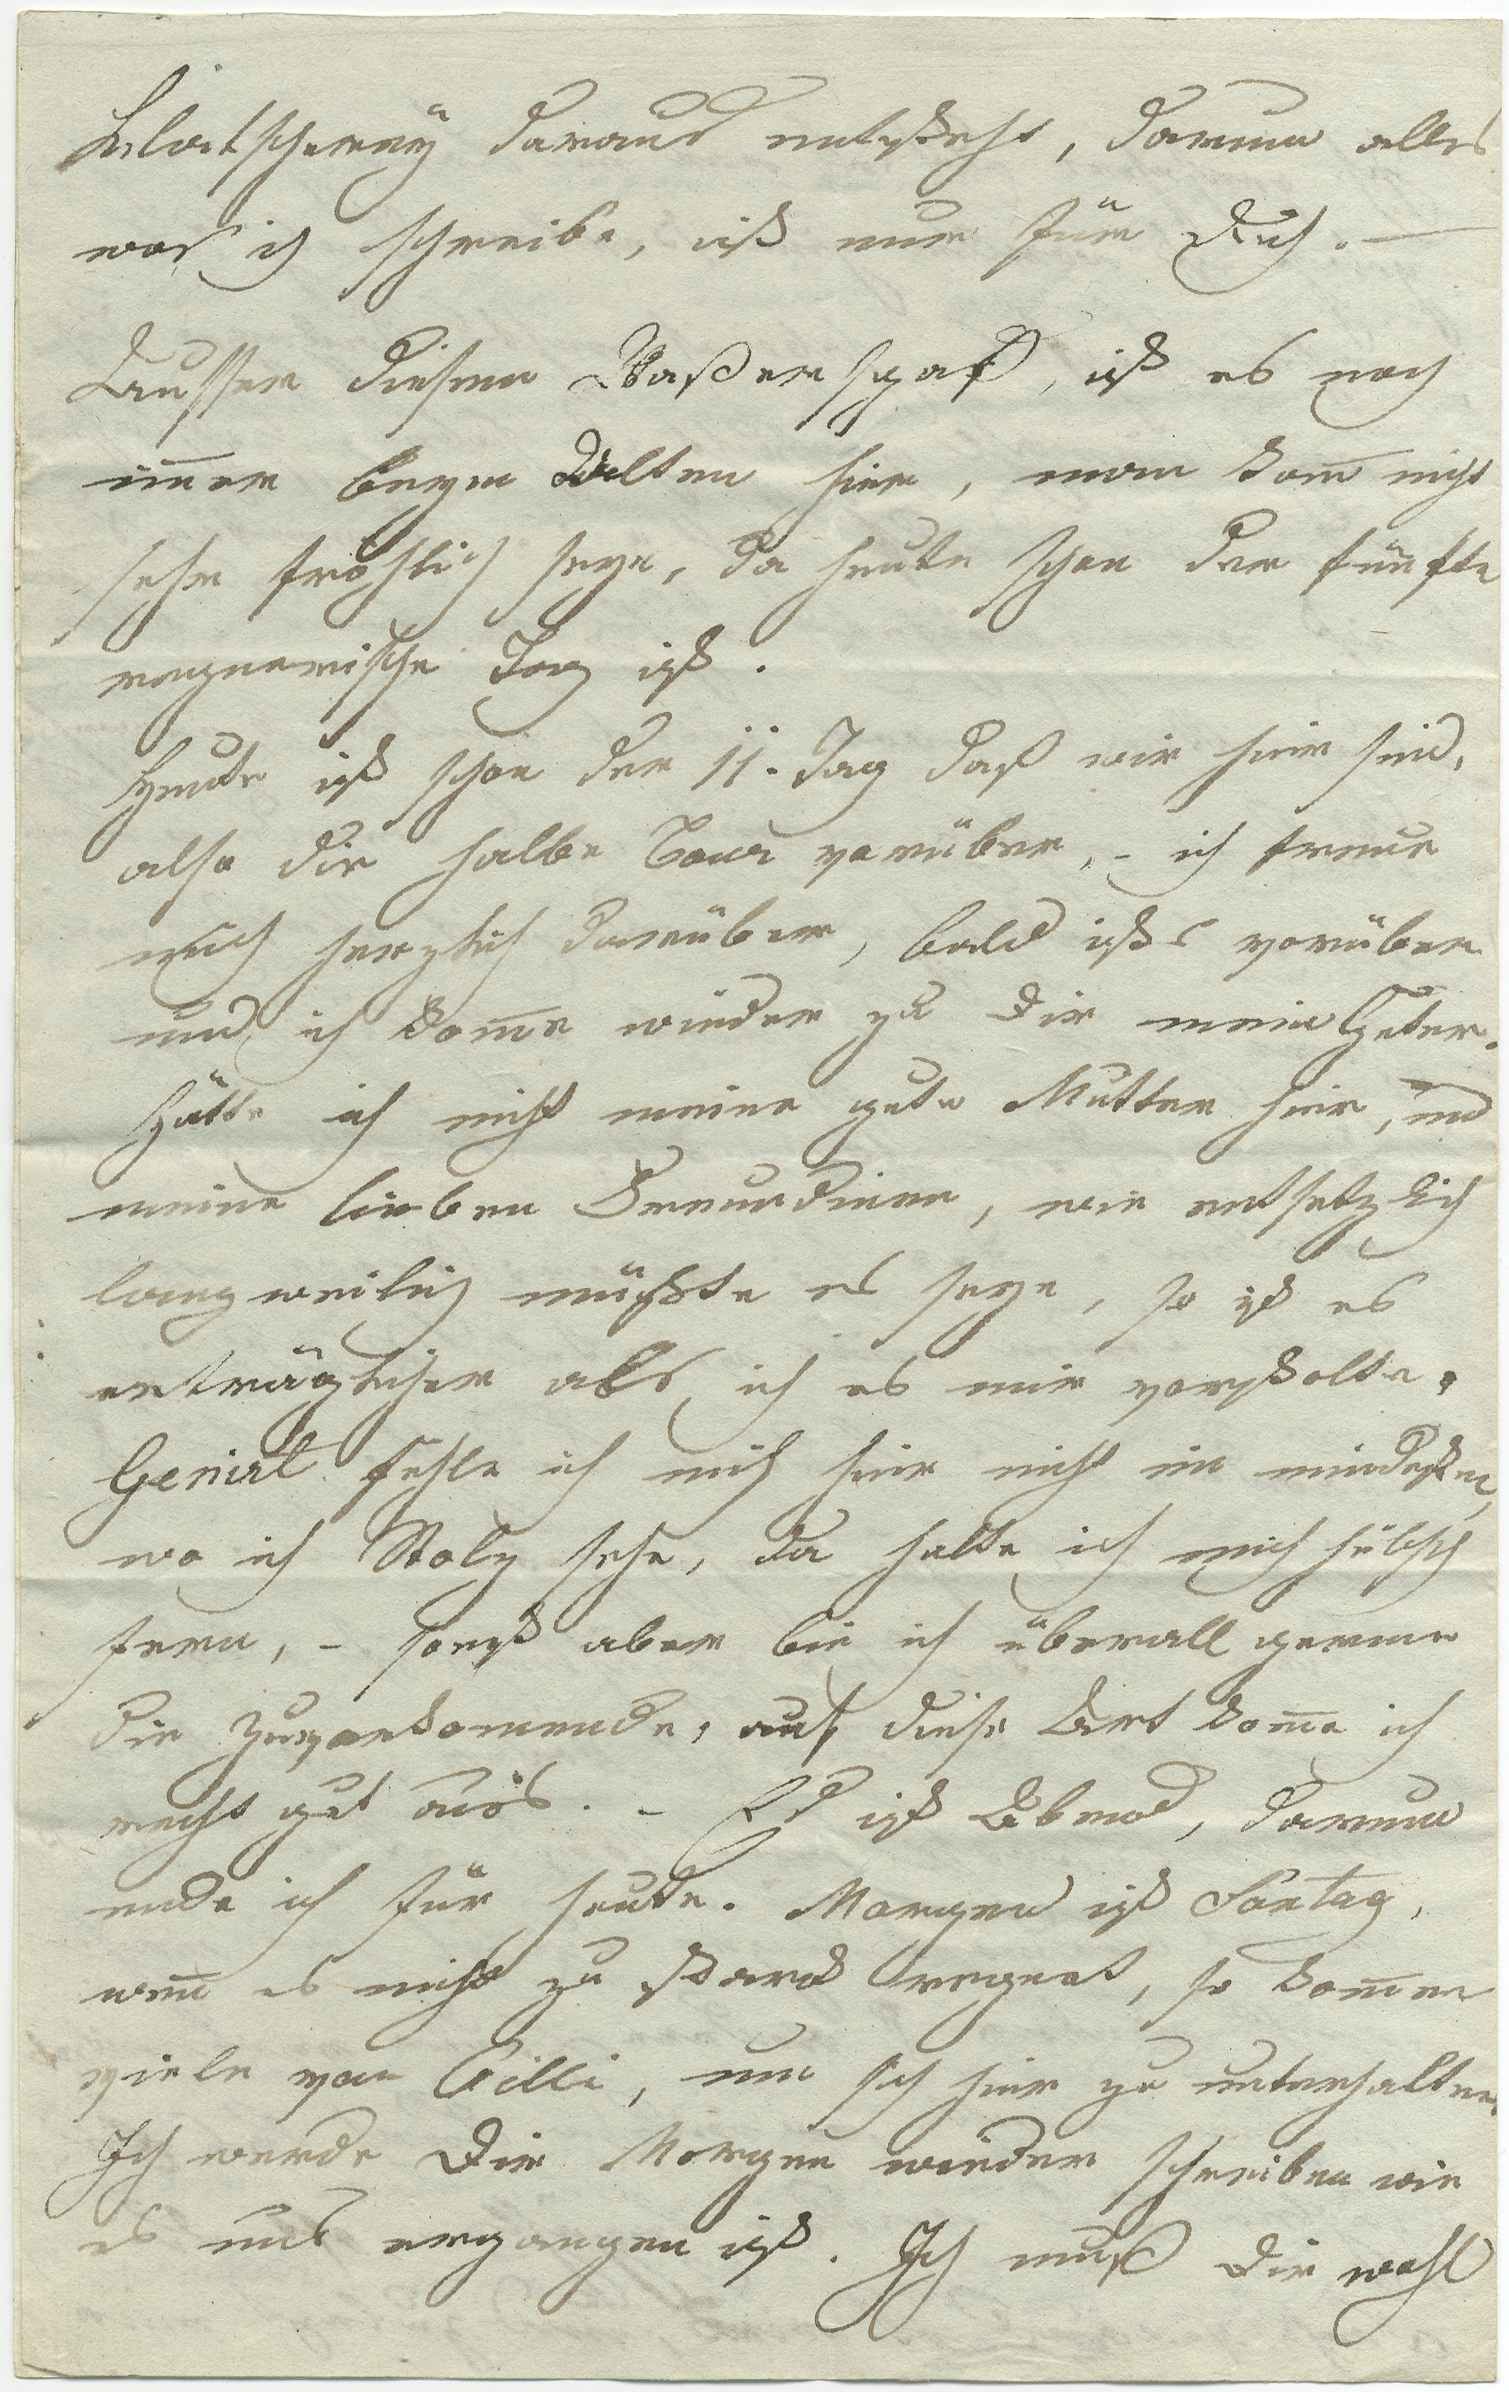 Klatscherey daraus entsteht, darum alles
was ich schreibe, ist nur für Dich. —
Ausser diesem Waßerspaß, ist es noch
im̅er beym Alten hier, man kan̅ nicht
sehr fröhlich seyn, da heute schon der fünfte
regnerische Tag ist.
Heute ist schon der 11. Tag daß wir hier sind,
also die halbe Cour vorüber, - ich freue
mich herzlich darüber, bald ists vorüber
und ich kom̅e wieder zu Dir mein Guter.
Hätte ich nicht meine gute Mutter hier, und
meine lieben Freundinen, wie entsetzlich
langweilig müßte es seyn, so ist es
erträglicher als ich es mir vorstelte.
Genirt fühle ich mich hier nicht im mindesten,
wo ich Stolz sehe, da halte ich mich hübsch
fern, - sonst aber bin ich überall gerne
die zuvorkomende, auf diese Art kom̅e ich
recht gut aus. - Es ist Abend, darum
ende ich für heute. Morgen ist Sontag,
wen̅ es nicht zu stark regnet, so kom̅en
viele von Cilli, um sich hier zu unterhalten.
Ich werde Dir Morgen wieder schreiben wie
es uns ergangen ist. Ich muß Dir wohl